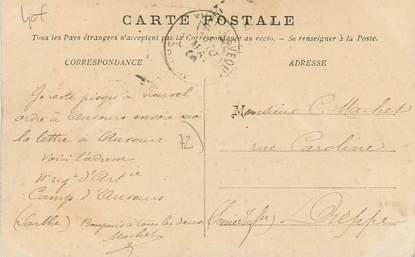 CARTE POSTALE
Tous les Pays étrangers n'acceptent pas la Correspondance au recto. — Se renseigner à la Poste.
CORRESPONDANCE
ADRESSE
Je reste jusqu'à nouvel
ordre à Auvours envoie moi
la lettre à Auvours
Voici l'adresse
d'Art^ie
Camp d'Auvours
(Sarthe) Bonjour à tous les deux
Machet
72
Monsieur C. Machet
rue Caroline
Dieppe
(Seine Infre)